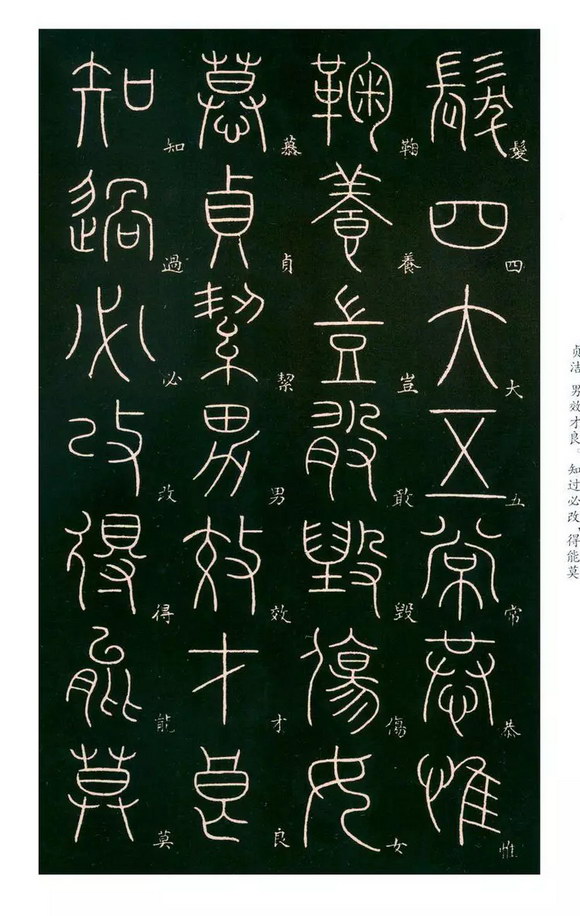 髮四大五常恭惟
鞠養豈敢毀傷女
慕貞絜男效才良
知過必改得能莫
貞洁 男效才良。 知过必改，得能莫